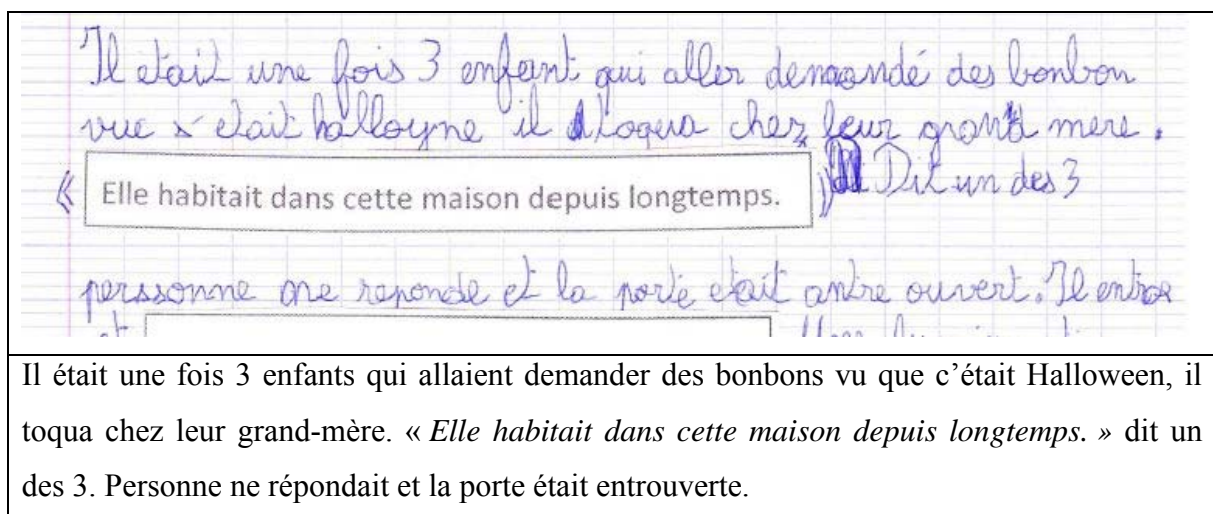 Il etait une fois 3 enfant qui aller demandé des bonbon
vue s etait halloyne il toqua chez leur grant mere.
« Elle habitait dans cette maison depuis longtemps. » Dit un des 3
perssonne ne reponde et la porte etait antre ouvert. Il entra
Il était une fois 3 enfants qui allaient demander des bonbons vu que c’était Halloween, il
toqua chez leur grand-mère. « Elle habitait dans cette maison depuis longtemps. » dit un
des 3. Personne ne répondait et la porte était entrouverte.